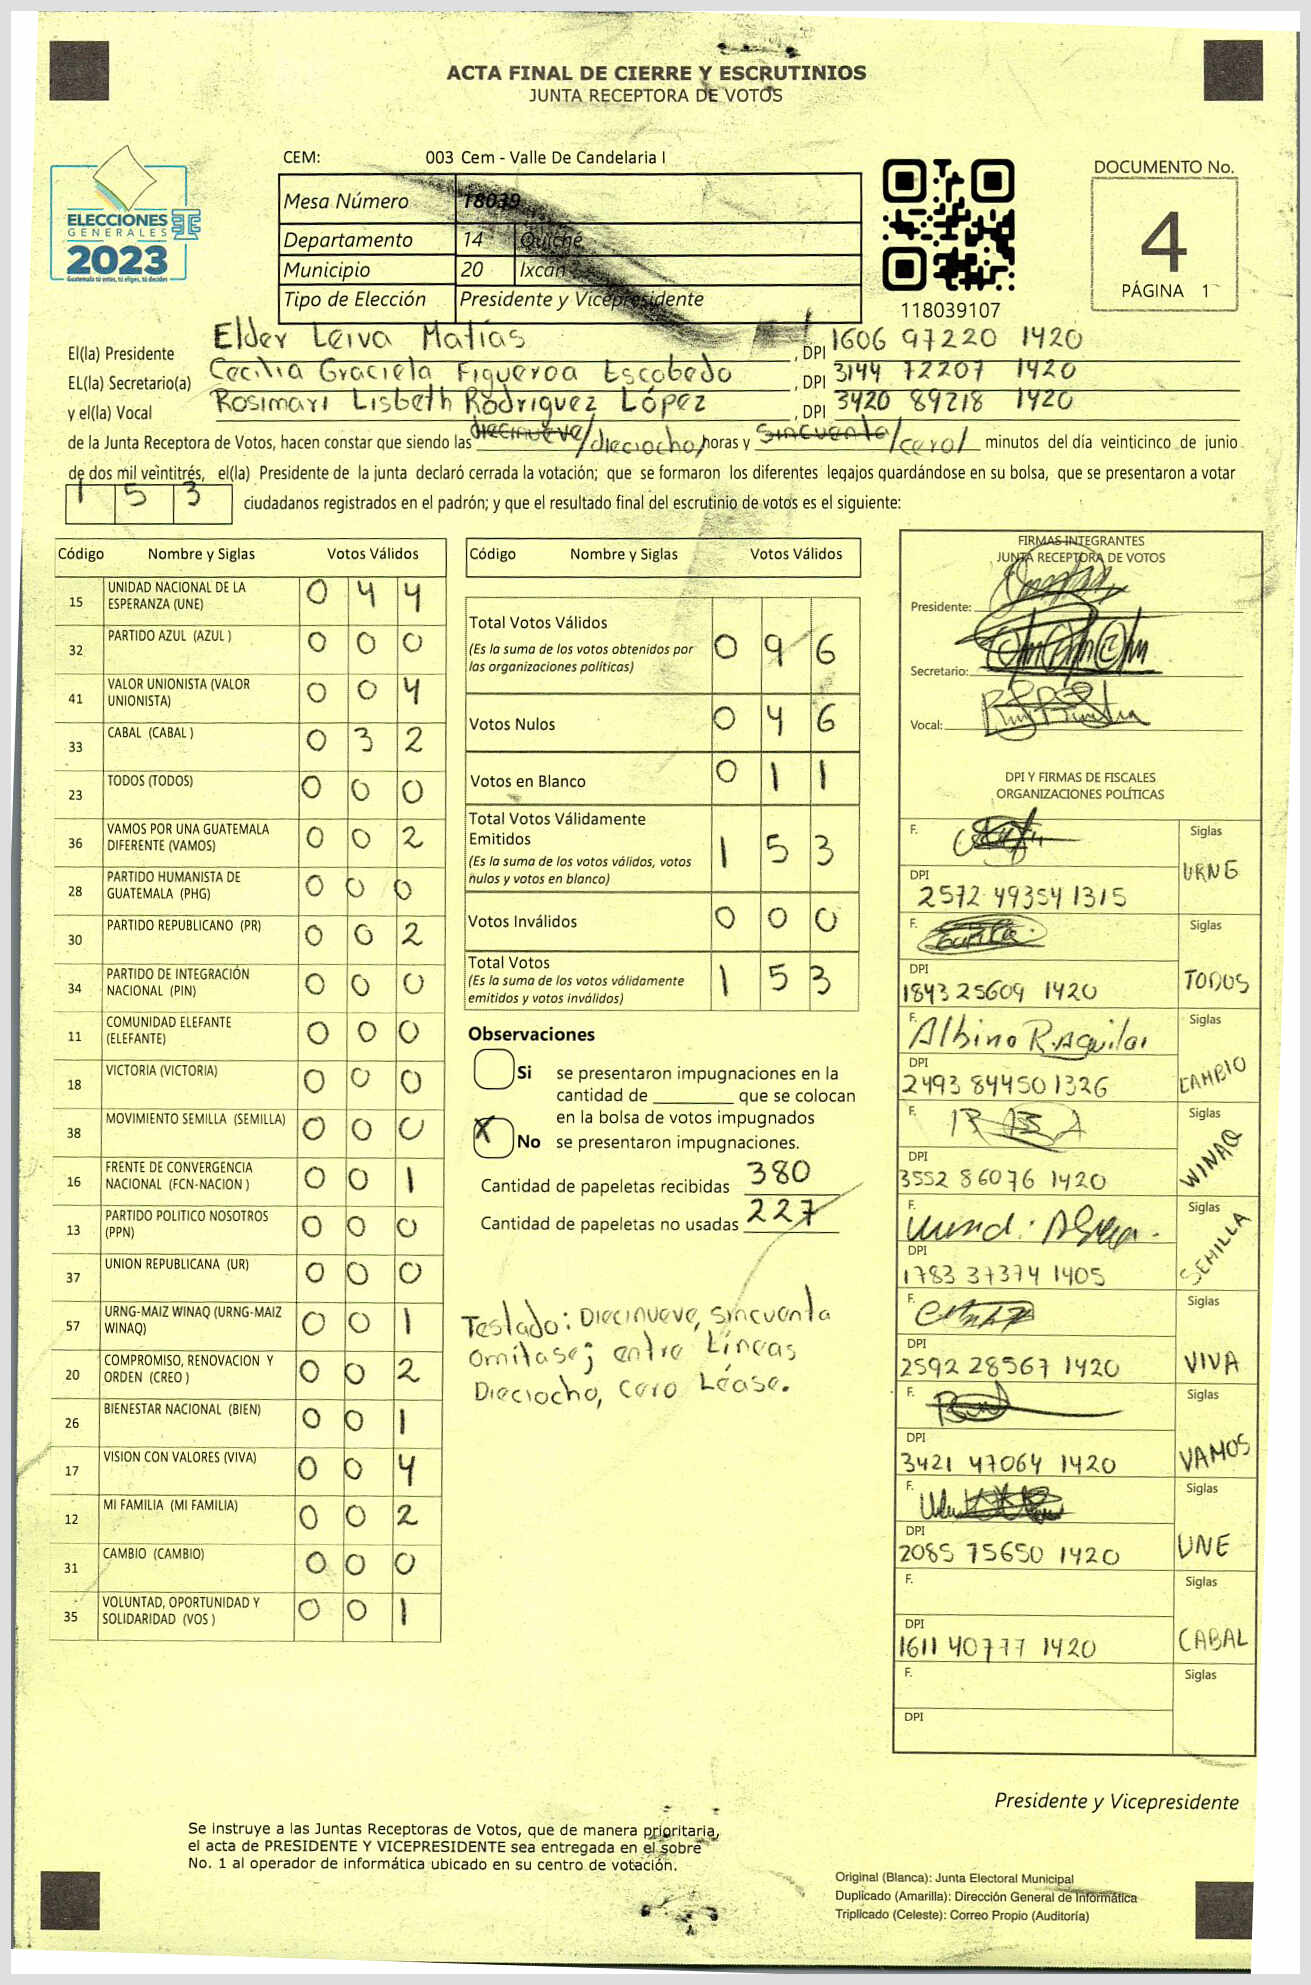 ACTA FINAL DE CIERRE Y ESCRUTINIOS
JUNTA RECEPTORA DE VOTOS
CEM: 003 Cem - Valle De Candelaria I
ELECCIONES
GENERALES
2023
Guatemala tú votas, tú eliges, tú decides
Mesa Número 18039
Departamento 14 Quiché
Municipio 20 Ixcán
Tipo de Elección Presidente y Vicepresidente
118039107
DOCUMENTO No.
4
PÁGINA 1
El(la) Presidente Elder Leiva Matías, DPI 1606 97220 1420
EL(la) Secretario(a) Cecilia Graciela Figueroa Escobedo, DPI 3144 72207 1420
y el(la) Vocal Rosimari Lisbeth Rodriguez López, DPI 3420 89218 1420
de la Junta Receptora de Votos, hacen constar que siendo las diecinueve/dieciocho/horas y sincuenta/cero/ minutos del día veinticinco de junio
de dos mil veintitrés, el(la) Presidente de la junta declaró cerrada la votación; que se formaron los diferentes legajos quardándose en su bolsa, que se presentaron a votar
1 5 3 ciudadanos registrados en el padrón; y que el resultado final del escrutinio de votos es el siguiente:
Código Nombre y Siglas Votos Válidos
15 UNIDAD NACIONAL DE LA ESPERANZA (UNE) 0 4 4
32 PARTIDO AZUL (AZUL ) 0 0 0
41 VALOR UNIONISTA (VALOR UNIONISTA) 0 0 4
33 CABAL (CABAL ) 0 3 2
23 TODOS (TODOS) 0 0 0
36 VAMOS POR UNA GUATEMALA DIFERENTE (VAMOS) 0 0 2
28 PARTIDO HUMANISTA DE GUATEMALA (PHG) 0 0 0
30 PARTIDO REPUBLICANO (PR) 0 0 2
34 PARTIDO DE INTEGRACIÓN NACIONAL (PIN) 0 0 0
11 COMUNIDAD ELEFANTE (ELEFANTE) 0 0 0
18 VICTORIA (VICTORIA) 0 0 0
38 MOVIMIENTO SEMILLA (SEMILLA) 0 0 0
16 FRENTE DE CONVERGENCIA NACIONAL (FCN-NACION ) 0 0 1
13 PARTIDO POLITICO NOSOTROS (PPN) 0 0 0
37 UNION REPUBLICANA (UR) 0 0 0
57 URNG-MAIZ WINAQ (URNG-MAIZ WINAQ) 0 0 1
20 COMPROMISO, RENOVACION Y ORDEN (CREO ) 0 0 2
26 BIENESTAR NACIONAL (BIEN) 0 0 1
17 VISION CON VALORES (VIVA) 0 0 4
12 MI FAMILIA (MI FAMILIA) 0 0 2
31 CAMBIO (CAMBIO) 0 0 0
35 VOLUNTAD, OPORTUNIDAD Y SOLIDARIDAD (VOS ) 0 0 1
Código Nombre y Siglas Votos Válidos
Total Votos Válidos 0 9 6
(Es la suma de los votos obtenidos por
las organizaciones políticas)
Votos Nulos 0 4 6
Votos en Blanco 0 1 1
Total Votos Válidamente
Emitidos 1 5 3
(Es la suma de los votos válidos, votos
nulos y votos en blanco)
Votos Inválidos 0 0 0
Total Votos 1 5 3
(Es la suma de los votos válidamente
emitidos y votos inválidos)
Observaciones
Si se presentaron impugnaciones en la
cantidad de ________ que se colocan
en la bolsa de votos impugnados
X No se presentaron impugnaciones.
Cantidad de papeletas recibidas 380
Cantidad de papeletas no usadas 227
Testado: Diecinueve, sincuenta
Omitase; entre Líneas
Dieciocho, cero Léase.
FIRMAS INTEGRANTES
JUNTA RECEPTORA DE VOTOS
Presidente:
Secretario:
Vocal:
DPI Y FIRMAS DE FISCALES
ORGANIZACIONES POLÍTICAS
F. Siglas
DPI 2572 49354 1315 URNG
F. Siglas
DPI 1843 25609 1420 TODOS
F. Albino R. Aguilar Siglas
DPI 2493 84450 1326 CAMBIO
F. Siglas
DPI 3552 86076 1420 WINAQ
F. Siglas
DPI 1783 37374 1405 SEMILLA
F. Siglas
DPI 2592 28567 1420 VIVA
F. Siglas
DPI 3421 47064 1420 VAMOS
F. Siglas
DPI 2085 75650 1420 UNE
F. Siglas
DPI 1611 40777 1420 CABAL
F. Siglas
DPI
Presidente y Vicepresidente
Se instruye a las Juntas Receptoras de Votos, que de manera prioritaria,
el acta de PRESIDENTE Y VICEPRESIDENTE sea entregada en el sobre
No. 1 al operador de informática ubicado en su centro de votación.
Original (Blanca): Junta Electoral Municipal
Duplicado (Amarilla): Dirección General de Informática
Triplicado (Celeste): Correo Propio (Auditoría)